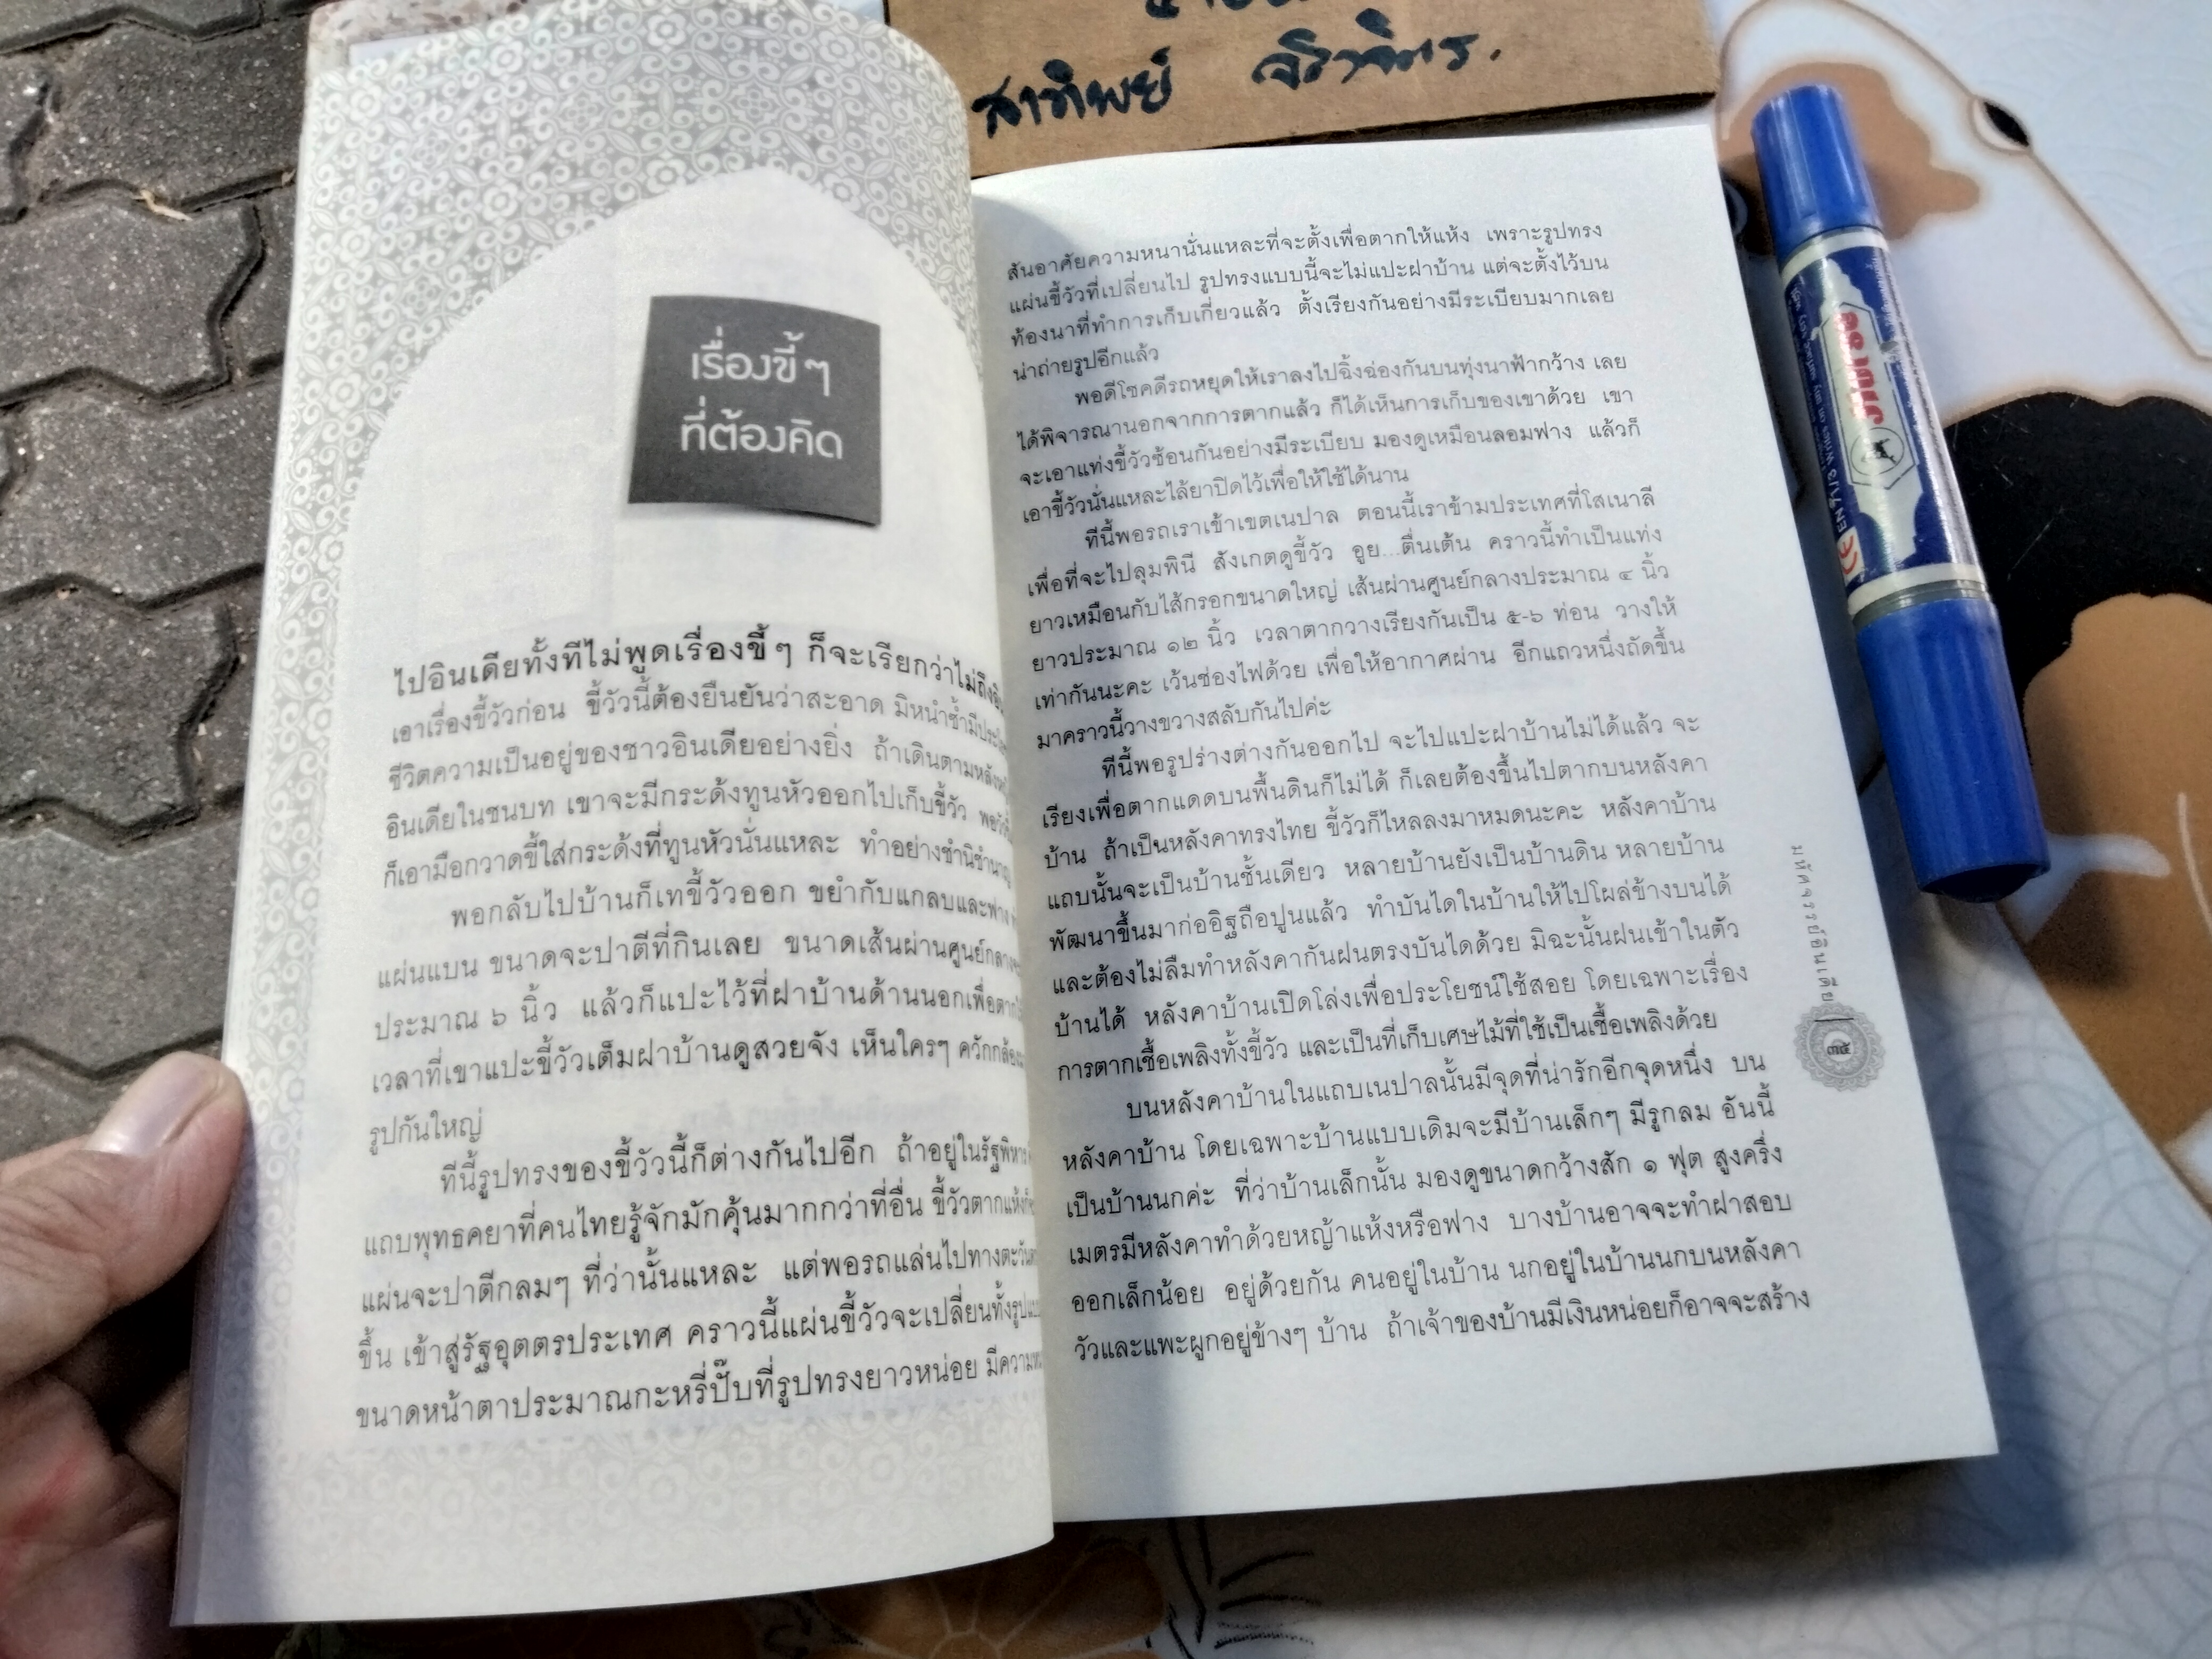 สาทิพย์
เรื่องขี้ๆ
ที่ต้องคิด
ไปอินเดียทั้งทีไม่พูดเรื่องขี้ๆ ก็จะเรียกว่าไม่ถึง
เอาเรื่องขี้วัวก่อน ขี้วัวนี้ต้องยืนยันว่าสะอาด มิหนำซ้ำมี
ชีวิตความเป็นอยู่ของชาวอินเดียอย่างยิ่ง ถ้าเดินตามหลัง
อินเดียในชนบท เขาจะมีกระด้งทูนหัวออกไปเก็บขี้วัว
ก็เอามือกวาดขี้ใส่กระด้งที่ทูนหัวนั่นแหละ ทำอย่างชำนิชำนาญ
พอกลับไปบ้านก็เทขี้วัวออก ขยำกับแกลบและฟาง
แผ่นแบน ขนาดจะปาตีที่กินเลย ขนาดเส้นผ่านศูนย์กลาง
ประมาณ ๖ นิ้ว แล้วก็แปะไว้ที่ฝาบ้านด้านนอกเพื่อ
เวลาที่เขาแปะขี้วัวเต็มฝาบ้านดูสวยจัง เห็นใครๆ ควักกล้อง
รูปกันใหญ่
ทีนี้รูปทรงของขี้วัวนี้ก็ต่างกันไปอีก ถ้าอยู่ในรัฐพิหาร
แถบพุทธคยาที่คนไทยรู้จักมักคุ้นมากกว่าที่อื่น ขี้วัวตากแห้ง
แผ่นจะปาตีกลมๆ ที่ว่านั้นแหละ แต่พอรถแล่นไปทาง
ขึ้น เข้าสู่รัฐอุตตรประเทศ คราวนี้แผ่นขี้วัวจะเปลี่ยนทั้ง
ขนาดหน้าตาประมาณกะหรี่ปั๊บที่รูปทรงยาวหน่อย มี
สันอาศัยความหนานั่นแหละที่จะตั้งเพื่อตากให้แห้ง เพราะรูปทรง
แผ่นขี้วัวที่เปลี่ยนไป รูปทรงแบบนี้จะไม่แปะฝาบ้าน แต่จะตั้งไว้บน
ท้องนาที่ทำการเก็บเกี่ยวแล้ว ตั้งเรียงกันอย่างมีระเบียบมากเลย
น่าถ่ายรูปอีกแล้ว
พอดีโชคดีรถหยุดให้เราลงไปฉิ้งฉ่องกันบนทุ่งนาฟ้ากว้าง เลย
ได้พิจารณานอกจากการตากแล้ว ก็ได้เห็นการเก็บของเขาด้วย เขา
จะเอาแท่งขี้วัวซ้อนกันอย่างมีระเบียบ มองดูเหมือนลอมฟาง แล้วก็
เอาขี้วัวนั่นแหละไล้ยาปิดไว้เพื่อให้ใช้ได้นาน
ทีนี้พอรถเราเข้าเขตเนปาล ตอนนี้เราข้ามประเทศที่โสเนาลี
เพื่อที่จะไปลุมพินี สังเกตดูขี้วัว อูย...ตื่นเต้น คราวนี้ทำเป็นแท่ง
ยาวเหมือนกับไส้กรอกขนาดใหญ่ เส้นผ่านศูนย์กลางประมาณ ๔ นิ้ว
ยาวประมาณ ๑๒ นิ้ว เวลาตากวางเรียงกันเป็น ๕-๖ ท่อน วางให้
เท่ากันนะคะ เว้นช่องไฟด้วย เพื่อให้อากาศผ่าน อีกแถวหนึ่งถัดขึ้น
มาคราวนี้วางขวางสลับกันไปค่ะ
ทีนี้พอรูปร่างต่างกันออกไป จะไปแปะฝาบ้านไม่ได้แล้ว จะ
เรียงเพื่อตากแดดบนพื้นดินก็ไม่ได้ ก็เลยต้องขึ้นไปตากบนหลังคา
บ้าน ถ้าเป็นหลังคาทรงไทย ขี้วัวก็ไหลลงมาหมดนะคะ หลังคาบ้าน
แถบนั้นจะเป็นบ้านชั้นเดียว หลายบ้านยังเป็นบ้านดิน หลายบ้าน
พัฒนาขึ้นมาก่ออิฐถือปูนแล้ว ทำบันไดในบ้านให้ไปโผล่ข้างบนได้
และต้องไม่ลืมทำหลังคากันฝนตรงบันไดด้วย มิฉะนั้นฝนเข้าในตัว
บ้านได้ หลังคาบ้านเปิดโล่งเพื่อประโยชน์ใช้สอย โดยเฉพาะเรื่อง
การตากเชื้อเพลิงทั้งขี้วัว และเป็นที่เก็บเศษไม้ที่ใช้เป็นเชื้อเพลิงด้วย
บนหลังคาบ้านในแถบเนปาลนั้นมีจุดที่น่ารักอีกจุดหนึ่ง บน
หลังคาบ้าน โดยเฉพาะบ้านแบบเดิมจะมีบ้านเล็กๆ มีรูกลม อันนี้
เป็นบ้านนกค่ะ ที่ว่าบ้านเล็กนั้น มองดูขนาดกว้างสัก ๑ ฟุต สูงครึ่ง
เมตรมีหลังคาทำด้วยหญ้าแห้งหรือฟาง บางบ้านอาจจะทำฝาสอบ
ออกเล็กน้อย อยู่ด้วยกัน คนอยู่ในบ้าน นกอยู่ในบ้านนกบนหลังคา
วัวและแพะผูกอยู่ข้างๆ บ้าน ถ้าเจ้าของบ้านมีเงินหน่อยก็อาจจะสร้าง
มหัศจรรย์อินเดีย
๓๕
ตราม้า